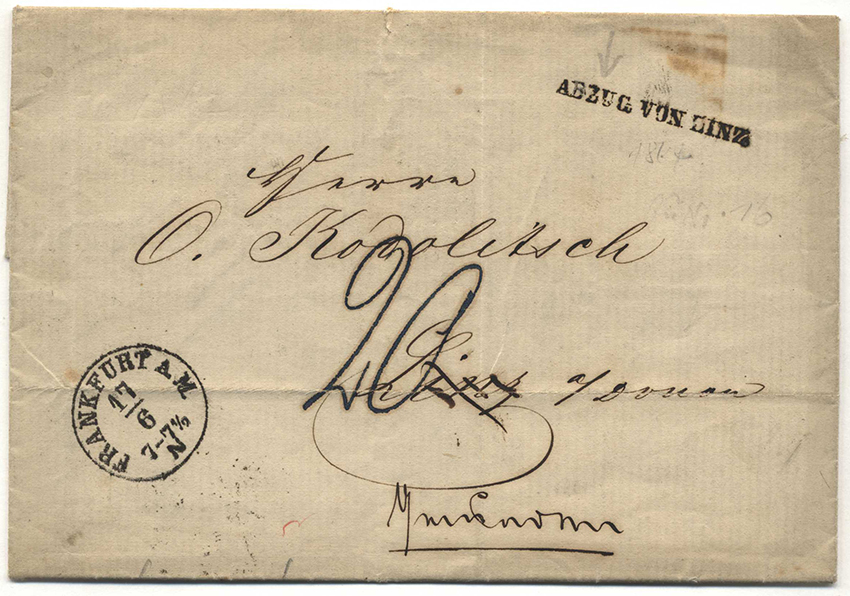 ABZUG VON LINZ
Herrn
O. Kodolitsch
20
Linz a/Donau
FRANKFURT A.M.
17/6
7-7½
N